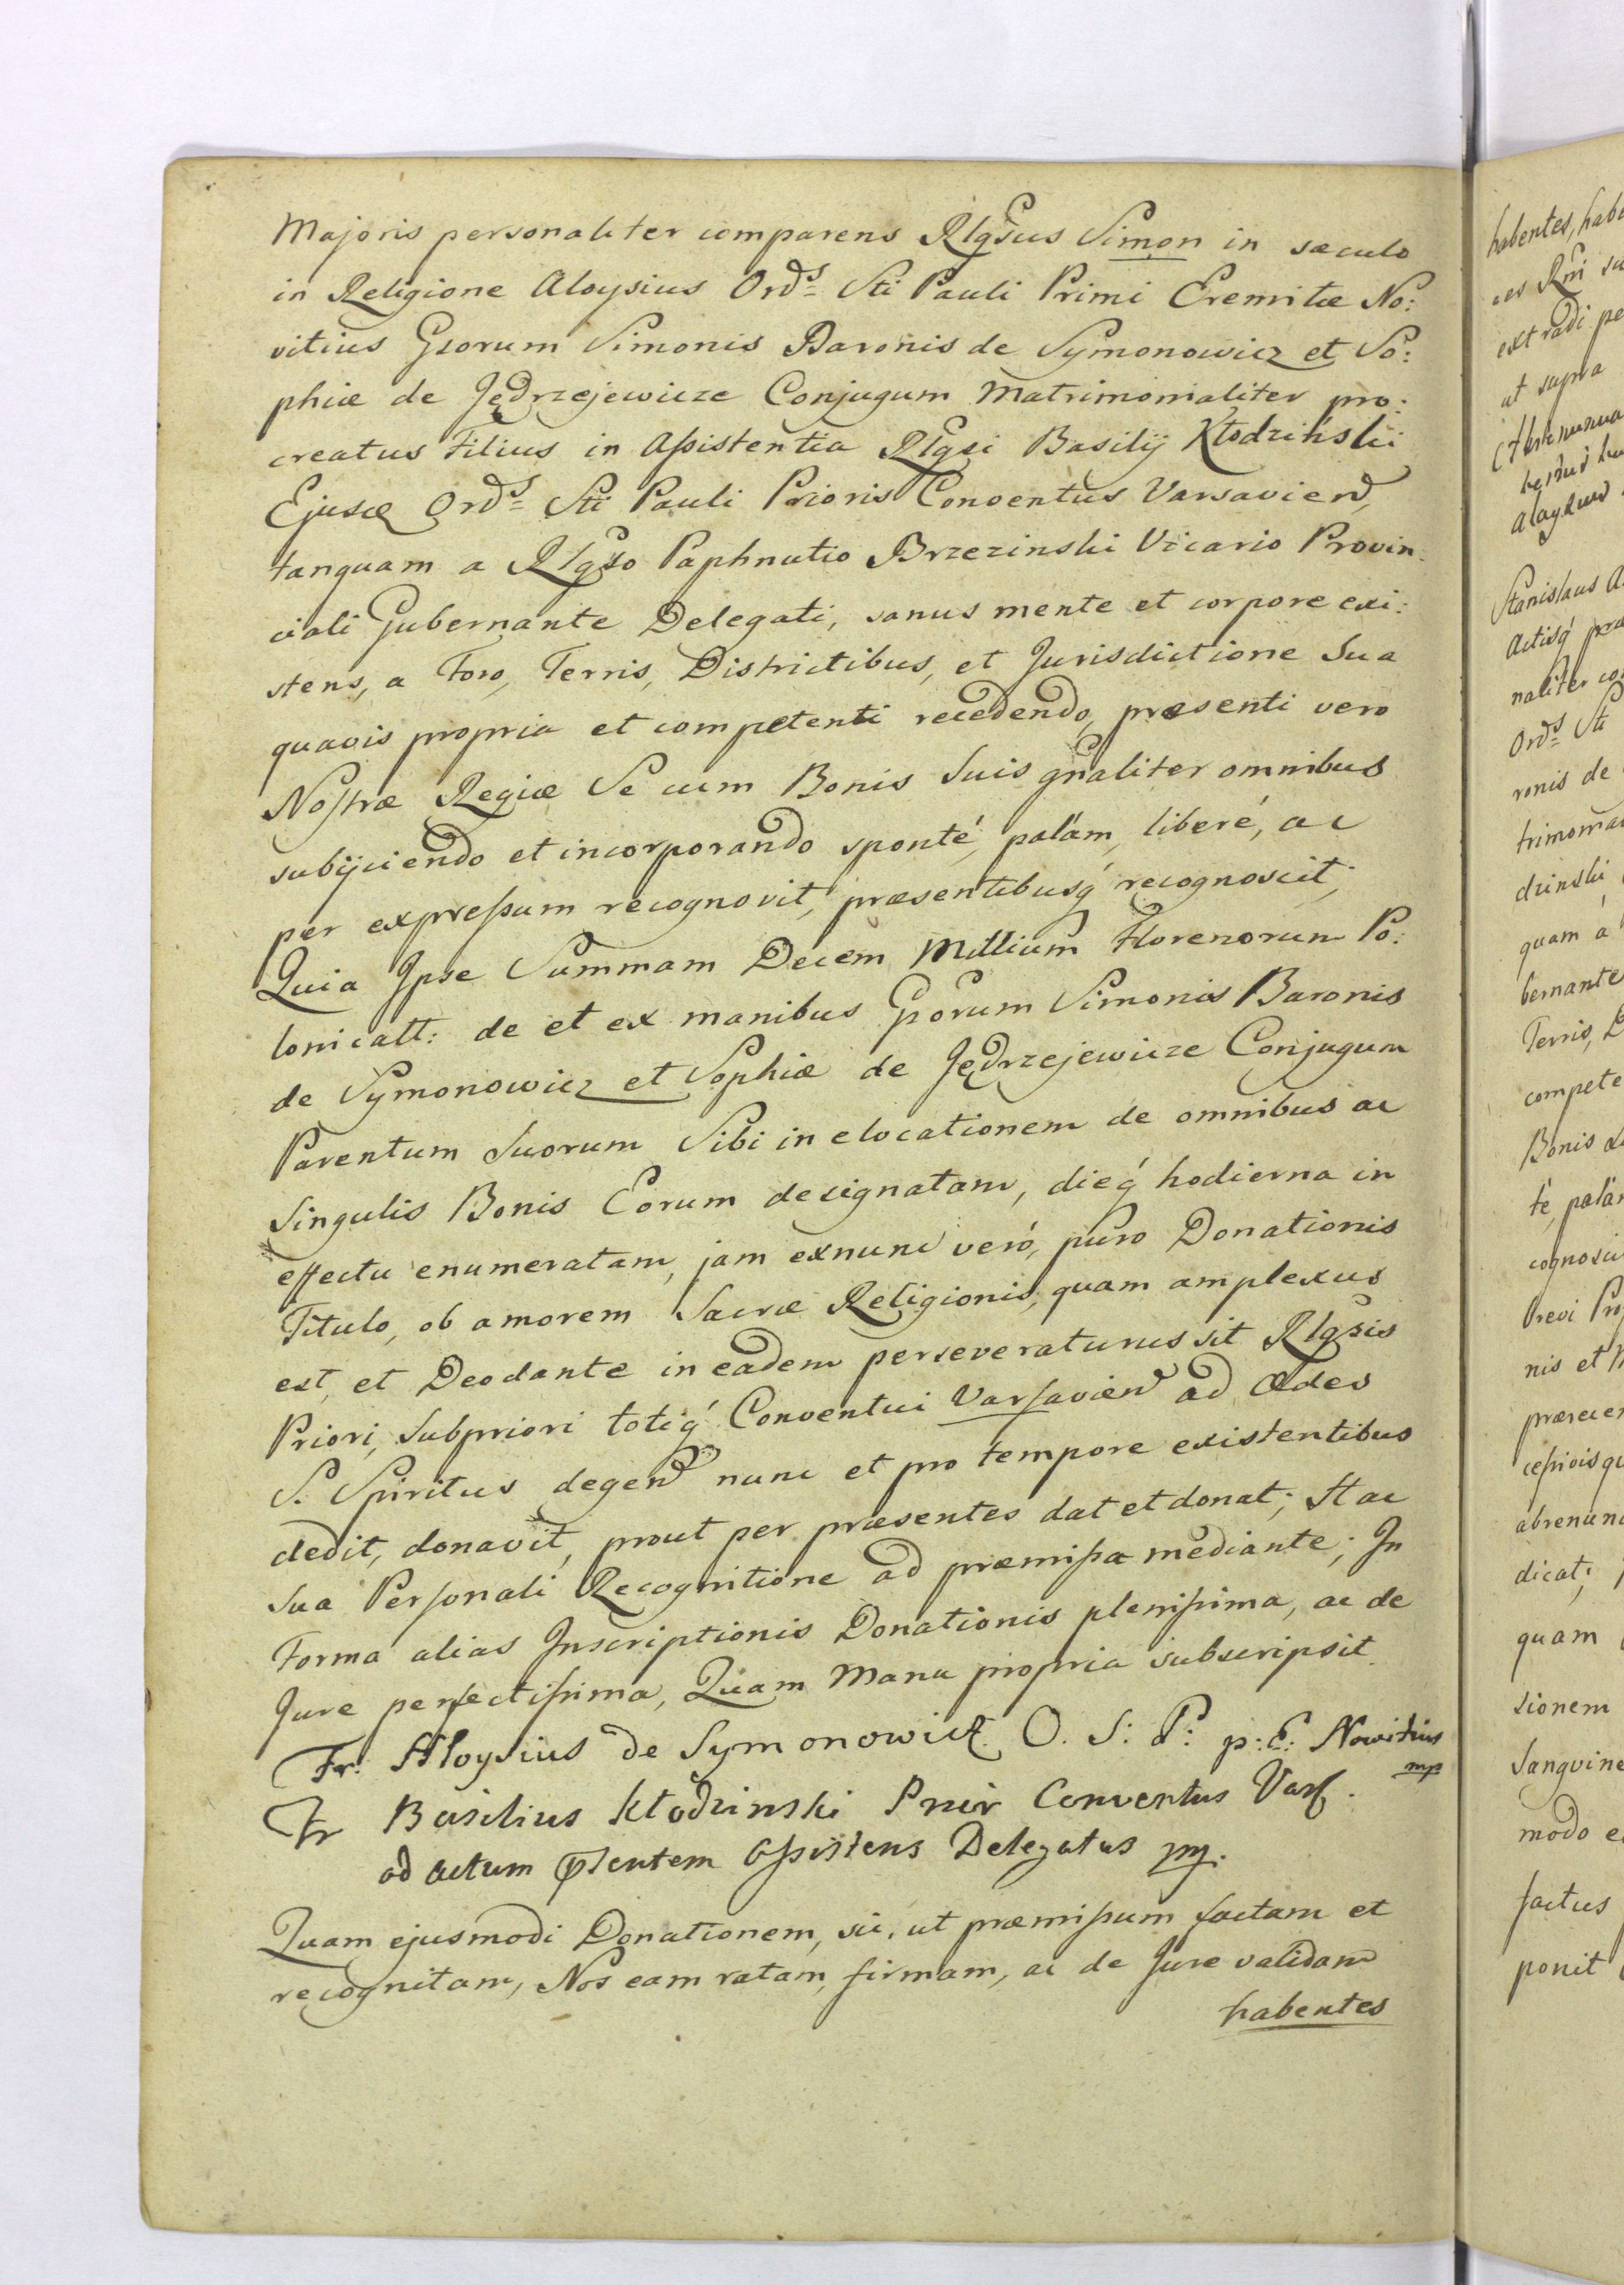 Majoris personaliter comparens Rlgsus Simon in sæculo
in Religione Aloysius Ords Sti Pauli Primi Eremitæ No:
vitius Gsorum Simonis Baronis de Symonowicz et So:
phiæ de Jędrzejewicze Conjugum Matrimonialiter pro:
creatus Filius in Assistentia Rlgsi Basilij Kłodzinski
Ejusd Ords Sti Pauli Prioris Conventus Varsaviend,
tanquam a Rlgso Paphnutio Brzezinski Vicario Provin:
ciali Gubernante Delegati, sanus mente et corpore exi:
stens, a Foro, Terris, Districtibus, et Jurisdictione Sua
quavis propria et competenti recedendo, præsenti vero
Nostræ Regiæ Se cum Bonis Suis gnaliter omnibus
subijciendo et incorporando sponté, palám, liberé, ac
per expressum recognovit, præsentibusq́ recognoscit;
Quia Ipse Summam Decem Millium Florenorum Po:
lonicall: de et ex manibus Gsorum Simonis Baronis
de Symonowicz et Sophiæ de Jędrzejewicze Conjugum
Parentum Suorum Sibi in elocationem de omnibus ac
Singulis Bonis Eorum designatam, dieq́ hodierna in
effectu enumeratam, jam exnunc veró, puro Donationis
Titulo, ob amorem Sacræ Religionis, quam amplexus
est, et Deodante in eadem perseveraturus sit Rlgsis
Priori, Subpriori totiq́ Conventui Varsaviend ad Ædes
S. Spiritus degend nunc et pro tempore existentibus
dedit, donavit, prout per præsentes dat et donat; Hac
sua Personali Recognitione ad præmissa mediante; In
Forma alias Inscriptionis Donationis plenissima, ac de
Jure perfectissima, Quam Manu propria subscripsit.
Fr: Aloysius de Symonowicz O. S: P: p: E: Nowitius
mp
Fr Basilius Kłodzinski Prior Conventus Vars.
ad actum pntentem Assistens Delegatus mp.
Quam ejusmodi Donationem, sic, ut præmissum factam et
recognitam, Nos eam ratam, firmam, ac de Jure validam
habentes
habentes, habe
ext radi pe
ut supra
Stanislaus A
Actisq́ præ
naliter co
Ords Sti
ronis de
trimonia
dzinski
quam a
bernante
Terris, D
compete
Bonis
té, palám
cognosci
nis et
abrenun
dicat;
quam
sionem
Sanguine
modo e
factus
ponit